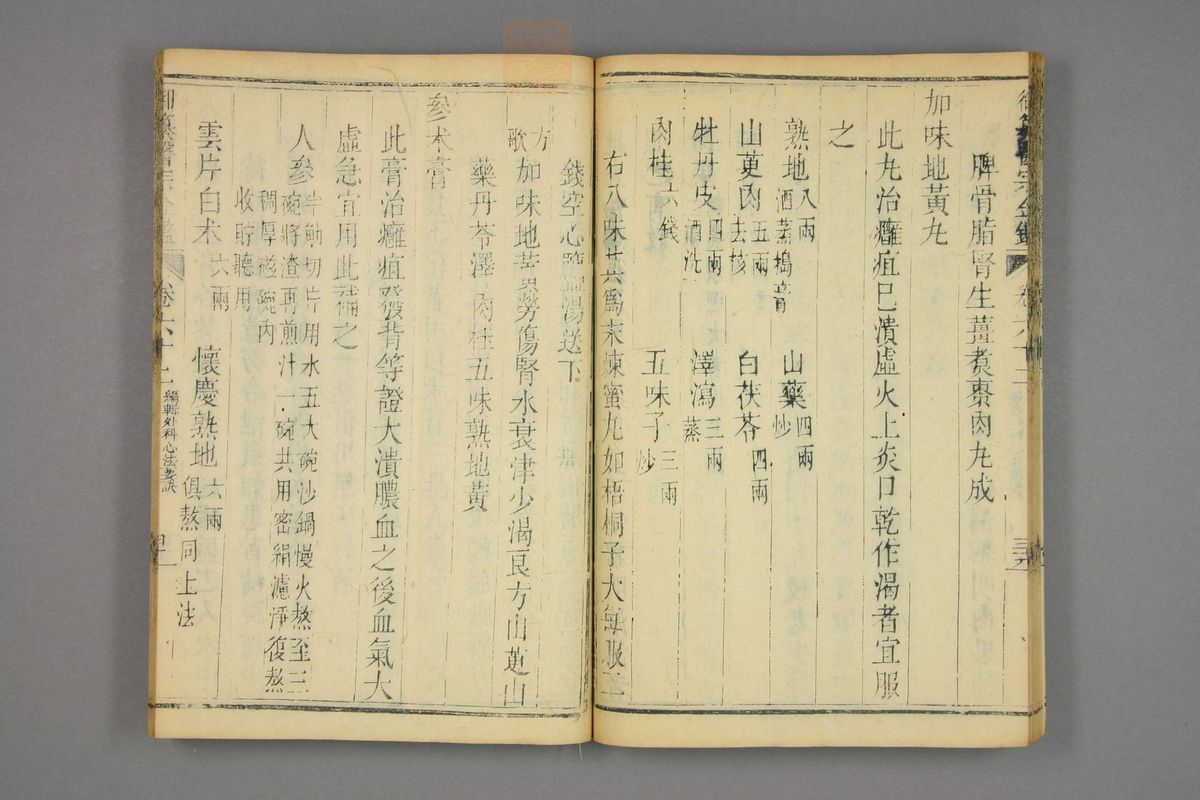 脾骨脂腎生薑煮棗肉丸成
加味地黃丸
此丸治癰疽已潰虛火上炎口乾作渴者宜服
之
熟地八兩酒蒸搗膏 山藥四兩炒
山萸肉五兩去核 白茯苓四兩
牡丹皮四兩酒洗 澤瀉三兩蒸
肉桂六錢 五味子三兩炒
右八味共為末煉蜜丸如梧桐子大每服二
錢空心鹽湯送下
方歌
加味地黃勞傷腎水衰津少渴良方山萸山
藥丹苓澤肉桂五味熟地黃
參朮膏
此膏治癰疽發背等證大潰膿血之後血氣大
虛急宜用此補之
人參半觔切片用水五大碗沙鍋慢火熬至三
碗將渣再煎汁一碗共用密絹濾淨復熬
稠厚磁碗內
收貯聽用
雲片白朮六兩 懷慶熟地六兩俱熬同上法
卷六十二
編輯外科心法要訣